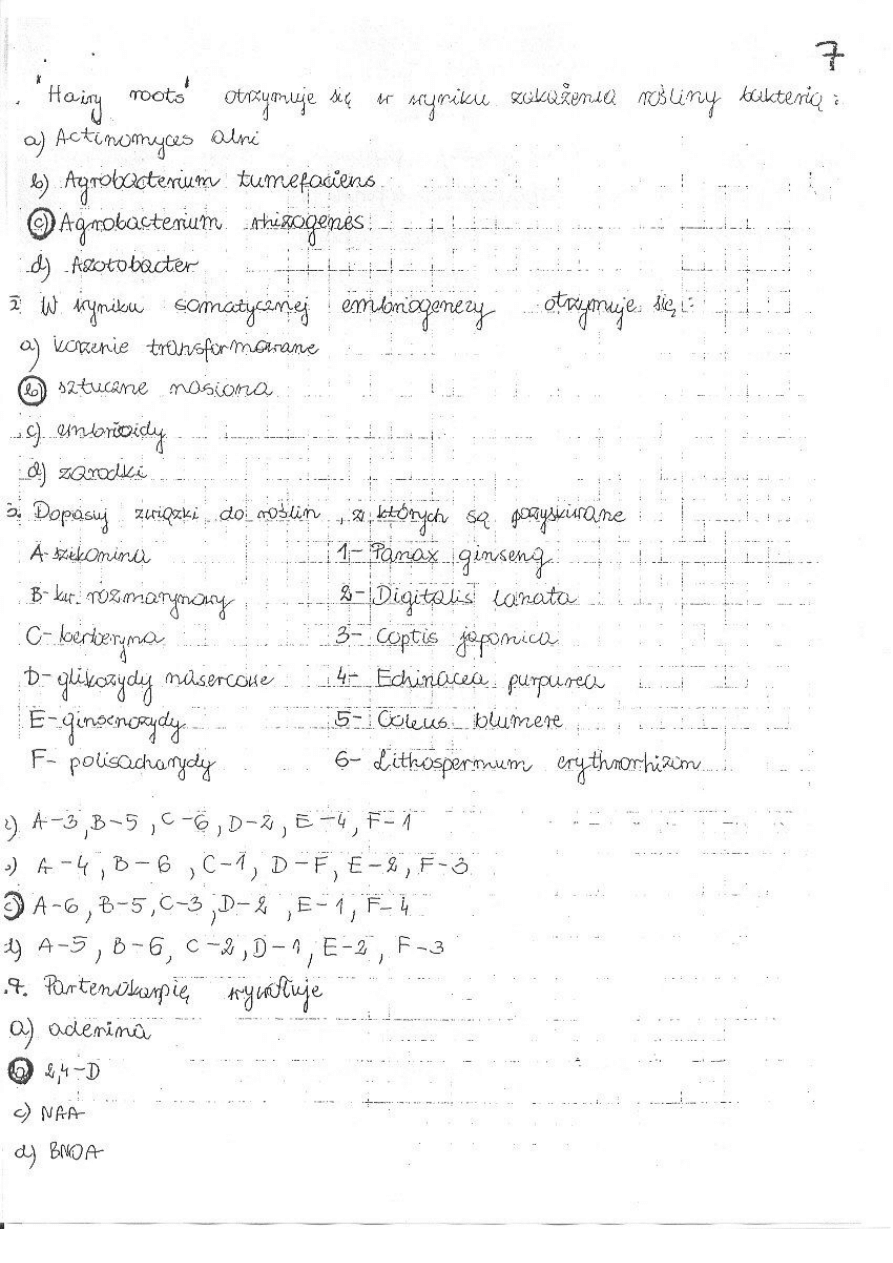 7
. "Hairy roots" otrzymuje się w wyniku zakażenia rośliny bakterią :
a) Actinomyces alni
b) Agrobacterium tumefaciens
c) Agrobacterium rhizogenes
d) Azotobacter
2 W wyniku somatycznej embriogenezy otrzymuje się :
a) korzenie transformowane
b) sztuczne nasiona
c) embrioidy
d) zarodki
3. Dopasuj związki do roślin , z których są pozyskiwane
A- szikonina 1- Panax ginseng
B- kw. rozmarynowy 2- Digitalis lanata
C- berberyna 3- Coptis japonica
D- glikozydy nasercowe 4- Echinacea purpurea
E- ginsenozydy 5- Coleus blumere
F- polisacharydy 6- Lithospermum erythrorhizon
A-3, B-5, C-6, D-2, E-4, F-1
A-4, B-6, C-1, D-F, E-2, F-3
c) A-6, B-5, C-3, D-2, E-1, F-4
d) A-5, B-6, C-2, D-1, E-2, F-3
.4. Partenokarpię wywołuje
a) adenina
b) 2,4-D
c) NAA
d) BNOA